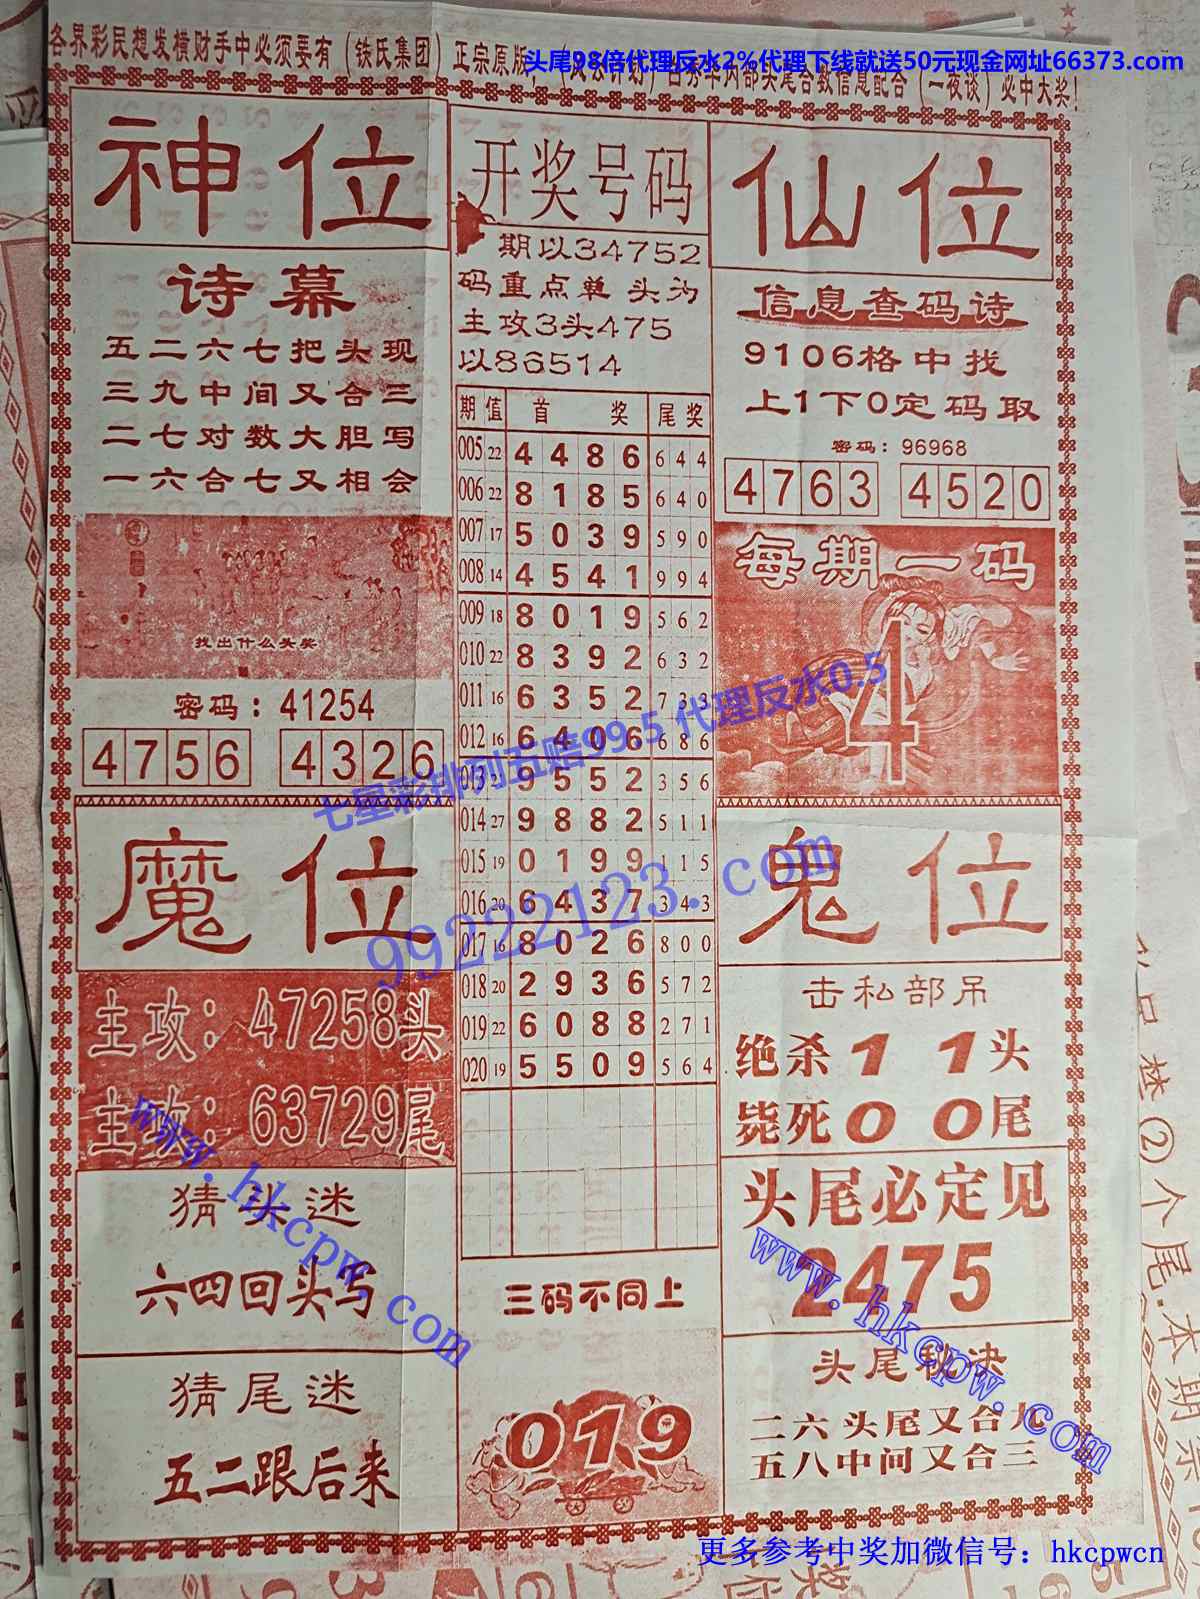 各界彩民想发横财手中必须要有（铁氏集团）正宗原版
内部头尾合数信息配合（一夜谈）必中大奖！
头尾98倍代理反水2%代理下线就送50元现金网址66373.com
神位
诗幕
五二六七把头现
三九中间又合三
二七对数大胆写
一六合七又相会
找出什么头奖
密码：41254
4756 4326
魔位
主攻：47258头
主攻：63729尾
猜头迷
六四回头写
猜尾迷
五二跟后来
开奖号码
期以34752
码重点单 头为
主攻3头475
以86514
期 值 首 奖 尾奖
005 22 4 4 8 6 6 4 4
006 22 8 1 8 5 6 4 0
007 17 5 0 3 9 5 9 0
008 14 4 5 4 1 9 9 4
009 18 8 0 1 9 5 6 2
010 22 8 3 9 2 6 3 2
011 16 6 3 5 2 7 3 3
012 16 6 4 0 6 6 8 6
013 21 9 5 5 2 3 5 6
014 27 9 8 8 2 5 1 1
015 19 0 1 9 9 1 1 5
016 20 6 4 3 7 3 4 3
017 16 8 0 2 6 8 0 0
018 20 2 9 3 6 5 7 2
019 22 6 0 8 8 2 7 1
020 19 5 5 0 9 5 6 4
三码不同上
019
仙位
信息查码诗
9106格中找
上1下0定码取
密码：96968
4763 4520
每期一码
4
鬼位
击私部吊
绝杀1 1头
毙死0 0尾
头尾必定见
2475
头尾秘决
二六头尾又合九
五八中间又合三
七星彩排列五赔99.5 代理反水0.5
99222123.com
www.hkcpw.com
www.hkcpw.com
更多参考中奖加微信号：hkcpwcn
②个尾.本期